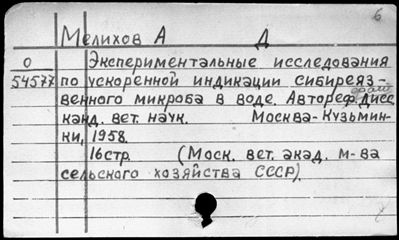 6
Мелихов А Д
О Экспериментальные исследования
54577 по ускоренной индикации сибиреяз-
венного микроба в воде. Автореф. дисс.
канд. вет. наук. Москва-Кузьмин-
ки, 1958.
16стр. (Моск. вет. акад. м-ва
сельского хозяйства СССР).